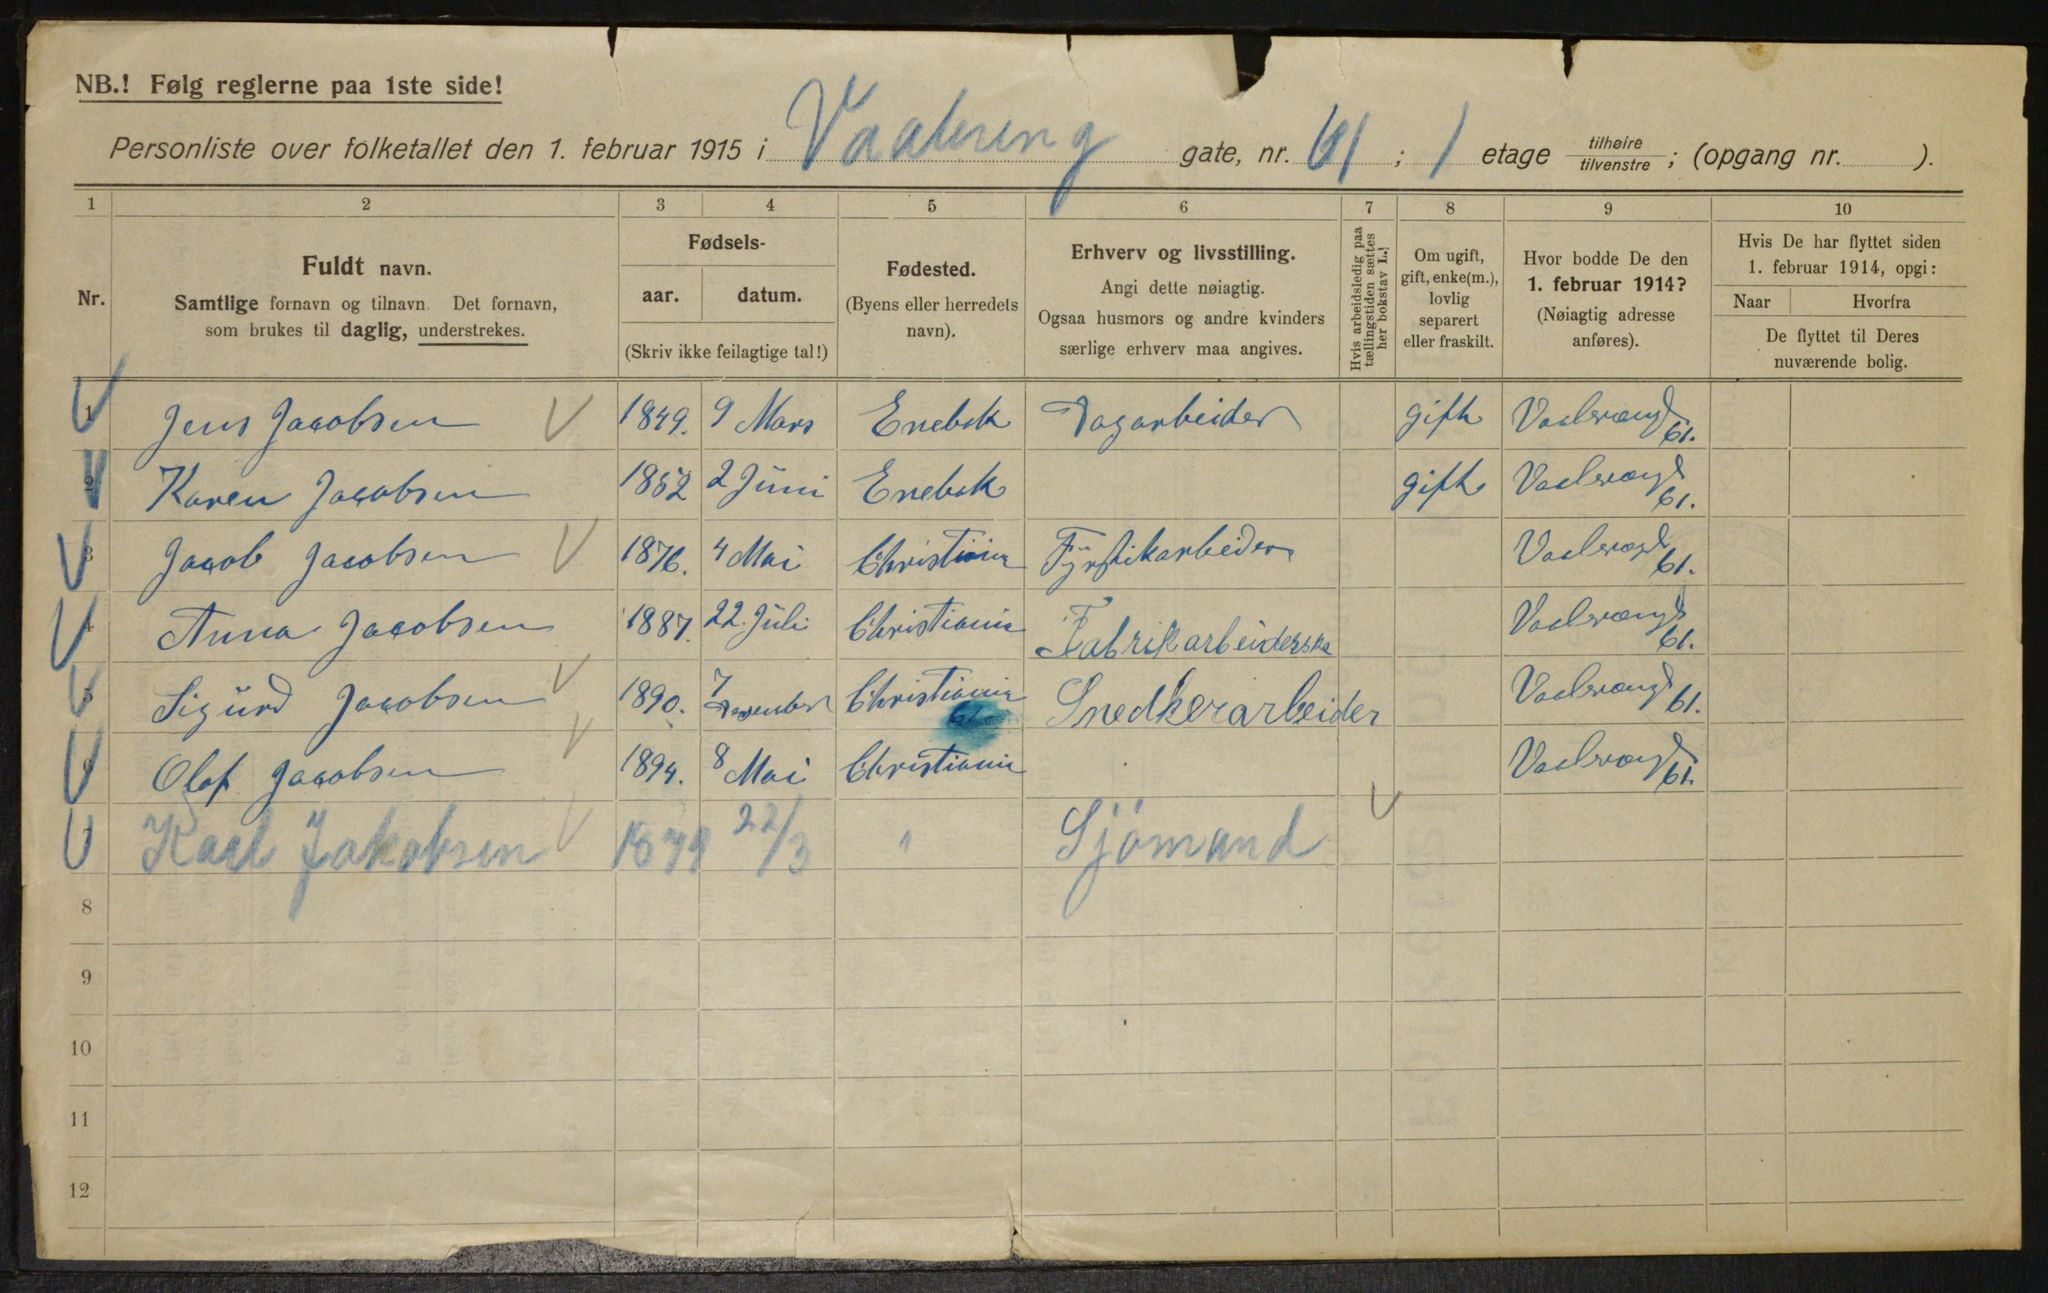 NB.! Følg reglerne paa 1ste side!
Personliste over folketallet den 1. februar 1915 i Vaalereng gate, nr. 61; 1 etage tilhøire/tilvenstre; (opgang nr. ).
1 2 3 4 5 6 7 8 9 10
Nr.
Fuldt navn.
Samtlige fornavn og tilnavn. Det fornavn,
som brukes til daglig, understrekes.
Fødsels-
aar. datum.
(Skriv ikke feilagtige tal!)
Fødested.
(Byens eller herredets
navn).
Erhverv og livsstilling.
Angi dette nøiagtig.
Ogsaa husmors og andre kvinders
særlige erhverv maa angives.
Hvis arbeidsledig paa
tællingstiden sættes
her bokstav L.!
Om ugift,
gift, enke(m.),
lovlig
separert
eller fraskilt.
Hvor bodde De den
1. februar 1914?
(Nøiagtig adresse
anføres).
Hvis De har flyttet siden
1. februar 1914, opgi:
Naar Hvorfra
De flyttet til Deres
nuværende bolig.
1 Jens Jacobsen 1849. 9 Mars Enebak Dagarbeider gift 61.
2 Karen Jacobsen 1852 2 Juni Enebak gift 61.
3 Jacob Jacobsen 1876. 4 Mai Christiania Fyrstikarbeider 61.
4 Anna Jacobsen 1887. 22. Juli Christiania Fabrikarbeiderske 61.
5 Sigurd Jacobsen 1890. 7 Desember Christiania Snedkerarbeider 61.
6 Olaf Jacobsen 1894. 8 Mai Christiania 61.
7 Karl Jakobsen 1879 22/3 " Sjömand
8
9
10
11
12